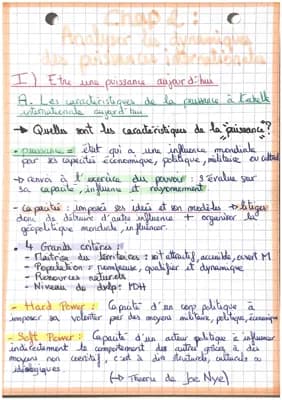 Chap 1 :
Analyser les dynamiques
des puissances internationales
I) Etre une puissance aujourd'hui
A. Les caractéristiques de la puissance à l'echelle
internationale aujourd'hui
→ Quelles sont les caractéristiques de la "puissance"?
- puissance = état qui a une influence mondiale
par ses capacités économique, politique, militaire ou culturel
→ renvoi à l'exercice du pouvoir : s'évalue sur
sa capacité, influence et rayonnement
- capacité : imposer ses idées et son modèles →
donc de détruire d'autre influence + organiser la
géopolitique mondiale, influencer.
• 4 Grands critères :
- Maîtrise du territoires : soit attractif, accessible, ouvert M
- Population = nombreuse, qualifier et dynamique
- Ressources naturels
- Niveau de dvlp : IDH
- Hard Power : Capacité d'un corp politique à
imposer sa volonter par des moyens militaire, politique, économique
- Soft Power : Capacité d'un acteur politique à influencer
indirectement le comportement des autres grâce à des
moyens non coercitif, c'est à dire structurels, culturels ou
idéologiques
(→ Théorie de Joe Nye)